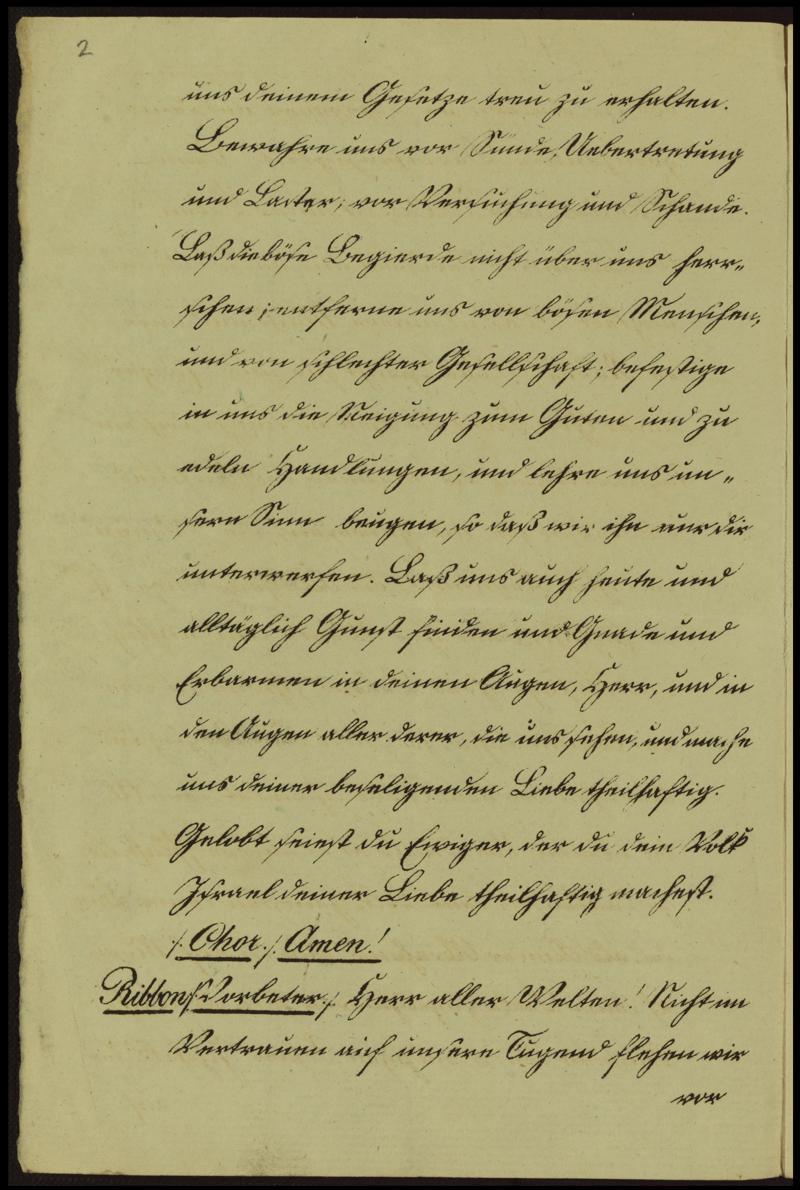 2
uns deinem Gesetze treu zu erhalten.
Bewahre uns vor Sünde, Uebertretung
und Laster; vor Versuchung und Schande.
Laß die böse Begierde nicht über uns herr-
schen; entferne uns von bösen Menschen,
und von schlechter Gesellschaft; befestige
in uns die Neigung zum Guten und zu
edeln Handlungen, und lehre uns un-
sern Sinn beugen, so daß wir ihn nur dir
unterwerfen. Laß uns auch heute und
alltäglich Gunst finden und Gnade und
Erbarmen in deinen Augen, Herr, und in
den Augen aller derer, die uns sehen, und mache
uns deiner beseligenden Liebe theilhaftig.
Gelobt seiest du Ewiger, der du dein Volk
Israel deiner Liebe theilhaftig machest.
/. Chor ./. Amen!
Ribbon /. Vorbeter ./. Herr aller Welten! Nicht im
Vertrauen auf unsere Tugend flehen wir
vor